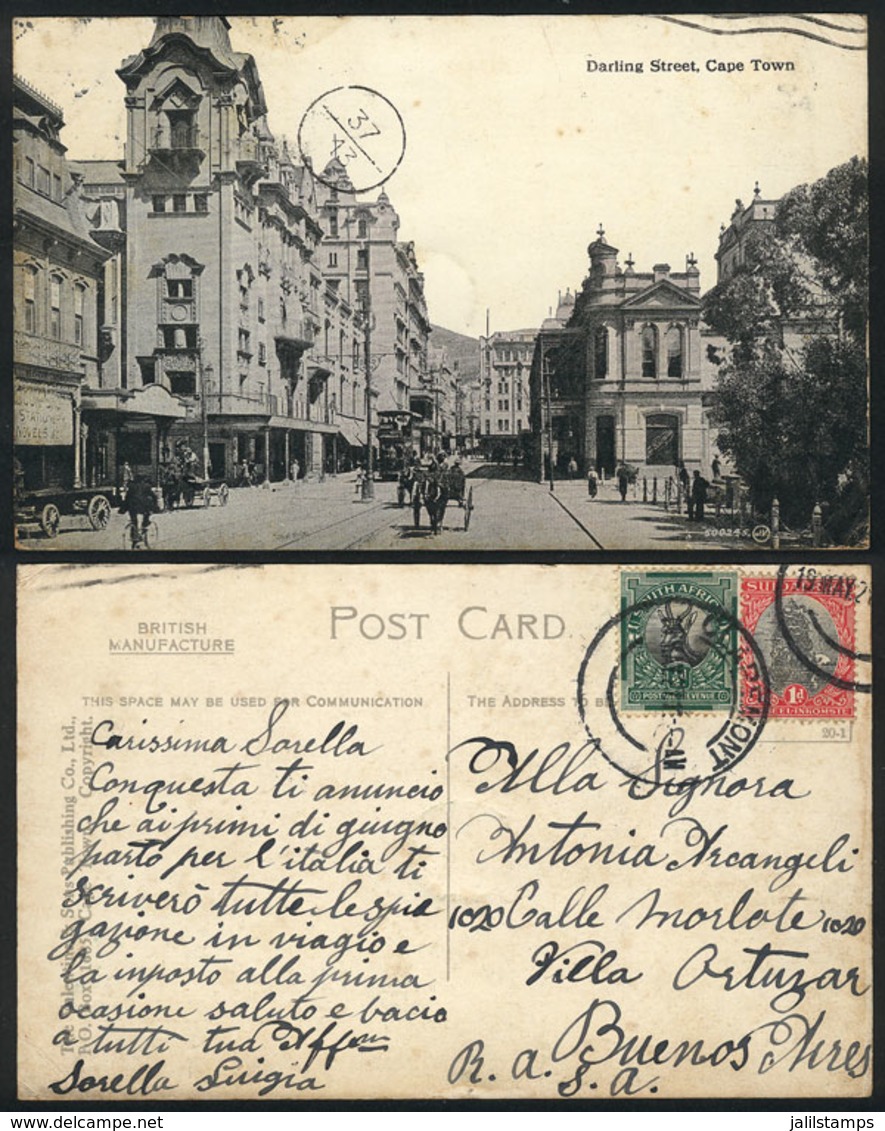 Darling Street, Cape Town
37
13
STATIONER
NOVELS &C
500245. JV
BRITISH
MANUFACTURE
POST CARD.
THIS SPACE MAY BE USED FOR COMMUNICATION
THE ADDRESS TO BE
SOUTH AFRICA
POSTAGE REVENUE
CLAREMONT
AM
SUID
1d
INKOMSTE
18 MAY 2
20-1
Seas Publishing Co., Ltd.,
P.O. Box 1685, Cape Town. Copyright.
Carissima Sorella
Conquesta ti anuncio
che ai primi di giugno
parto per l'italia ti
scriverò tutte le spie
gazione in viagio e
la inposto alla prima
ocasione saluto e bacio
a tutti tua Affma
Sorella Luigia
Alla Signora
Antonia Arcangeli
1020 Calle Morlote 1020
Villa Ortuzar
Buenos Aires
R. a. S. a.
jalilstamps